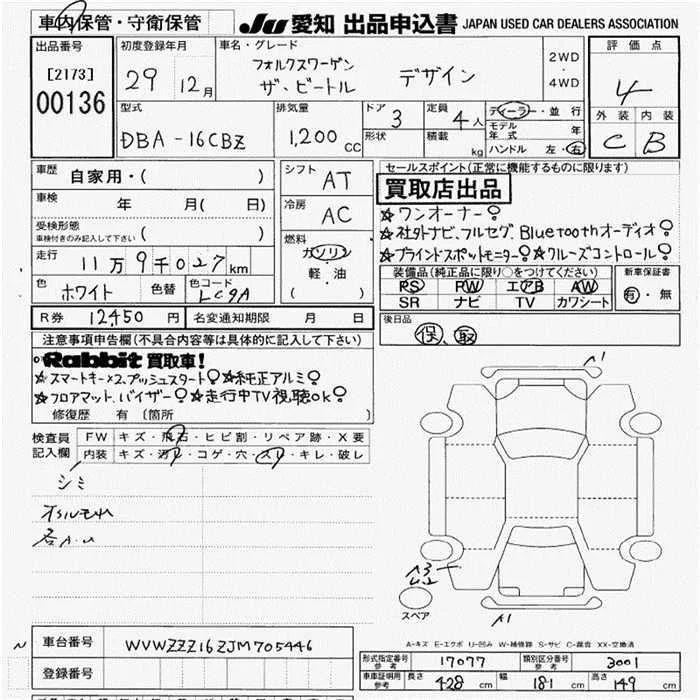 車内保管・守衛保管
JU 愛知 出品申込書 JAPAN USED CAR DEALERS ASSOCIATION
出品番号
[2173]
00136
初度登録年月
29 12月
車名・グレード
フォルクスワーゲン
ザ、ビートル デザイン
2WD
・
4WD
評価点
4
外装 内装
C B
型式
DBA-16CBZ
排気量
1,200 CC
ドア 3
形状
定員 4人
積載 kg
ディーラー・並行
モデル年式 年
ハンドル 左・右
車歴 自家用・( )
車検 年 月( 日)
受検形態
車検付きのみ記入して下さい ( )
走行 11万9千027km
色 ホワイト 色替 色コード LC9A
シフト AT
冷房 AC
燃料
ガソリン
軽・油
( )
セールスポイント(正常に機能するものに限ります)
買取店出品
☆ワンオーナー
☆社外ナビ、フルセグ、Bluetoothオーディオ
☆ブラインドスポットモニター ☆クルーズコントロール
装備品(純正品に限り○をつけてください)
PS PW エアB AW
SR ナビ TV カワシート
新車保証書
有・無
R券 12,450円 名変通知期限 月 日
後日品
保、取
注意事項申告欄(不具合内容等は具体的に記入して下さい)
Rabbit 買取車!
☆スマートキー×2、プッシュスタート ☆純正アルミ
☆フロアマット、バイザー ☆走行中TV視聴ok
修復歴 有 〔箇所 〕
検査員記入欄
FW キズ・飛石・ヒビ割・リペア跡・X要
内装 キズ・汚レ・コゲ・穴・スリ・キレ・破レ
シミ
A1
スペア
A1
A-キズ E-エクボ U-凹み W-補修跡 S-サビ C-腐食 XX-交換済
車台番号 WVWZZZ16ZJM705446
登録番号
形式指定番号 参考 17077 類別区分番号 参考 3001
車庫証明用 参考 長さ 428 cm 幅 181 cm 高さ 149 cm